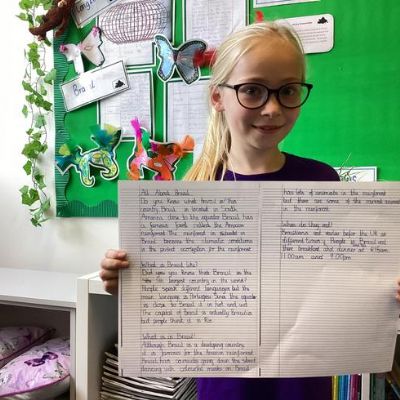 Brazil
All About Brazil
Do you know what Brazil is? This
country Brazil is located in South
America close to the equator Brazil has
a famous forest called the Amazon
rainforest the rainforest is situated in
Brazil because the climatic conditions
in the perfect for the rainforest
What is Brazil like?
Did you know that Brazil is the
5th largest country in the world?
People speak different languages but the
main language is Portuguese. Since the equator
is close to Brazil it is hot and wet.
The capital of Brazil is actually Brasilia
but people think it is Rio.
What is in Brazil?
Although Brazil is a developing country
it is famous for the Amazon rainforest.
Brazil has carnivals going down the street
dancing with colourful masks on. Brazil
has lots of animals in the rainforest
but there are some of the animals
in the rainforest.
When do they eat?
Brazilians eat below the UK at
different times. People in Brazil eat
their breakfast and dinner at 6:15am,
11:00am and 7:00pm.